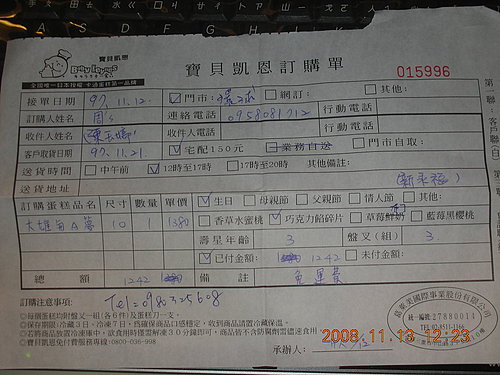 寶貝凱恩
Baby Loves
全國唯一日本授權 卡通蛋糕第一品牌
寶貝凱恩訂購單
015996
接單日期 97.11.12. ☑門市: □網訂: □其他:
訂購人姓名 連絡電話 0958081712 行動電話
收件人姓名 收件人電話 行動電話
客戶取貨日期 97.11.21. ☑宅配150元 □業務自送 □門市自取:
送貨時間 □中午前 ☑12時至17時 □17時至20時 其他備註:
送貨地址
訂購蛋糕品名 尺寸 數量 單價 ☑生日 □母親節 □父親節 □情人節 □其他:
10 1380 □香草水蜜桃 ☑巧克力餡碎片 □草莓鮮奶 □藍莓黑櫻桃
壽星年齡 3 盤叉(組) 3
☑已付金額: 1242 □未付金額:
總額 1242 備註 免運費
訂購注意事項:
Tel=0983325608
◎每個蛋糕均附盤叉一組(各6件)及蛋糕刀一支。
◎保存期限:冷藏3日、冷凍7日,為確保商品口感穩定,收到商品請置冷藏保溫。
◎若將商品放置冷凍庫中,欲食用時需解凍30分鐘即可,商品皆不含防腐劑需儘速食用
◎寶貝凱恩免付費服務專線:0800-036-998
承辦人:
統一編號:27880014
TEL:02-8511-1166
2008.11.13 12:23